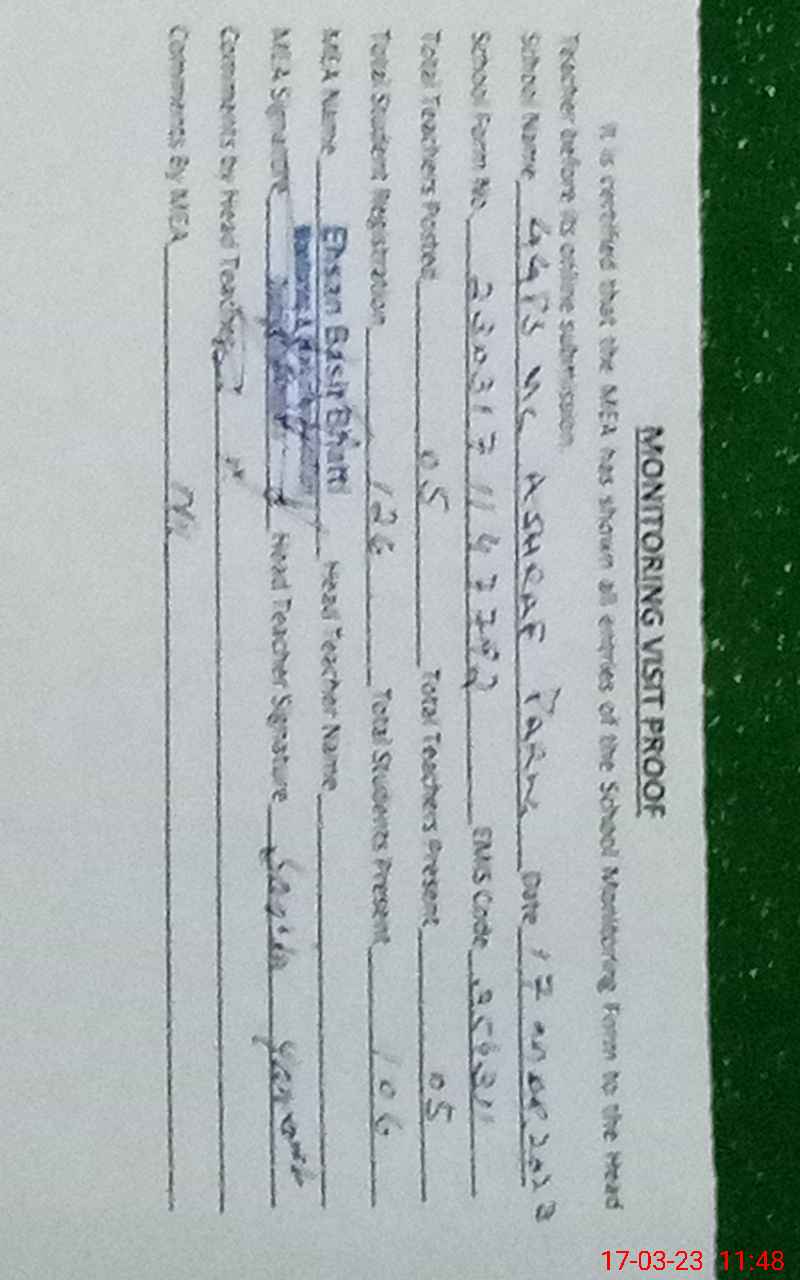 MONITORING VISIT PROOF
It is certified that the MEA has shown all entries of the School Monitoring Form to the Head
Teacher before its online submission.
School Name GGPS MC ASHRAF Date 17
School Form No. EMIS Code
Total Teachers Posted 05 Total Teachers Present 05
Total Student Registration 126 Total Students Present 106
MEA Name Ehsan Basir Bhatti Head Teacher Name
MEA Signature Head Teacher Signature
Comments by Head Teacher
Comments By MEA Nil
17-03-23 11:48